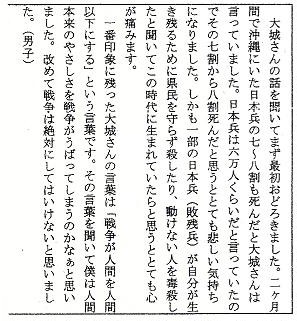 大城さんの話を聞いてまず最初おどろきました。二ヶ月
間で沖縄にいた日本兵の七～八割も死んだと大城さんは
言っていました。日本兵は六万人くらいだと言っていたの
でその七割から八割死んだと思うととても悲しい気持ち
になりました。しかも一部の日本兵（敗残兵）が自分が生
き残るために県民を守らず殺したり、動けない人を毒殺し
たと聞いてこの時代に生まれていたらと思うととても心
が痛みます。
一番印象に残った大城さんの言葉は「戦争が人間を人間
以下にする」という言葉です。その言葉を聞いて僕は人間
本来のやさしさを戦争がうばってしまうのかなぁと思い
ました。改めて戦争は絶対にしてはいけないと思いまし
た。（男子）